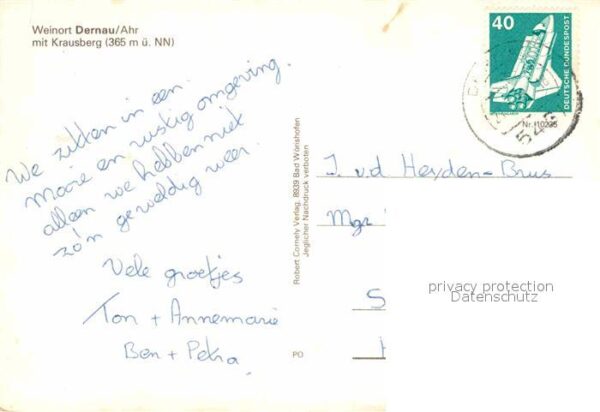 Weinort Dernau/Ahr
mit Krausberg (365 m ü. NN)
We zitten in een
mooie en rustig omgeving.
alleen we hebben niet
zo'n geweldig weer.
Vele groetjes
Ton + Annemarie
Ben + Petra
Robert Cornely Verlag, 8939 Bad Wörishofen
Jeglicher Nachdruck verboten
PO
40
DEUTSCHE BUNDESPOST
Nr. 10295
J. v.d Heyden-Brus
Mgr
S
privacy protection
Datenschutz